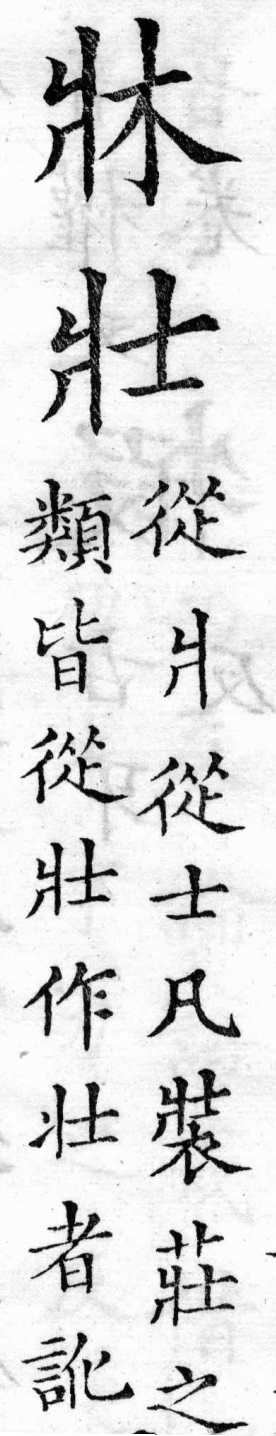 牀
壯
從爿從士凡裝莊之
類皆從壯作壮者訛